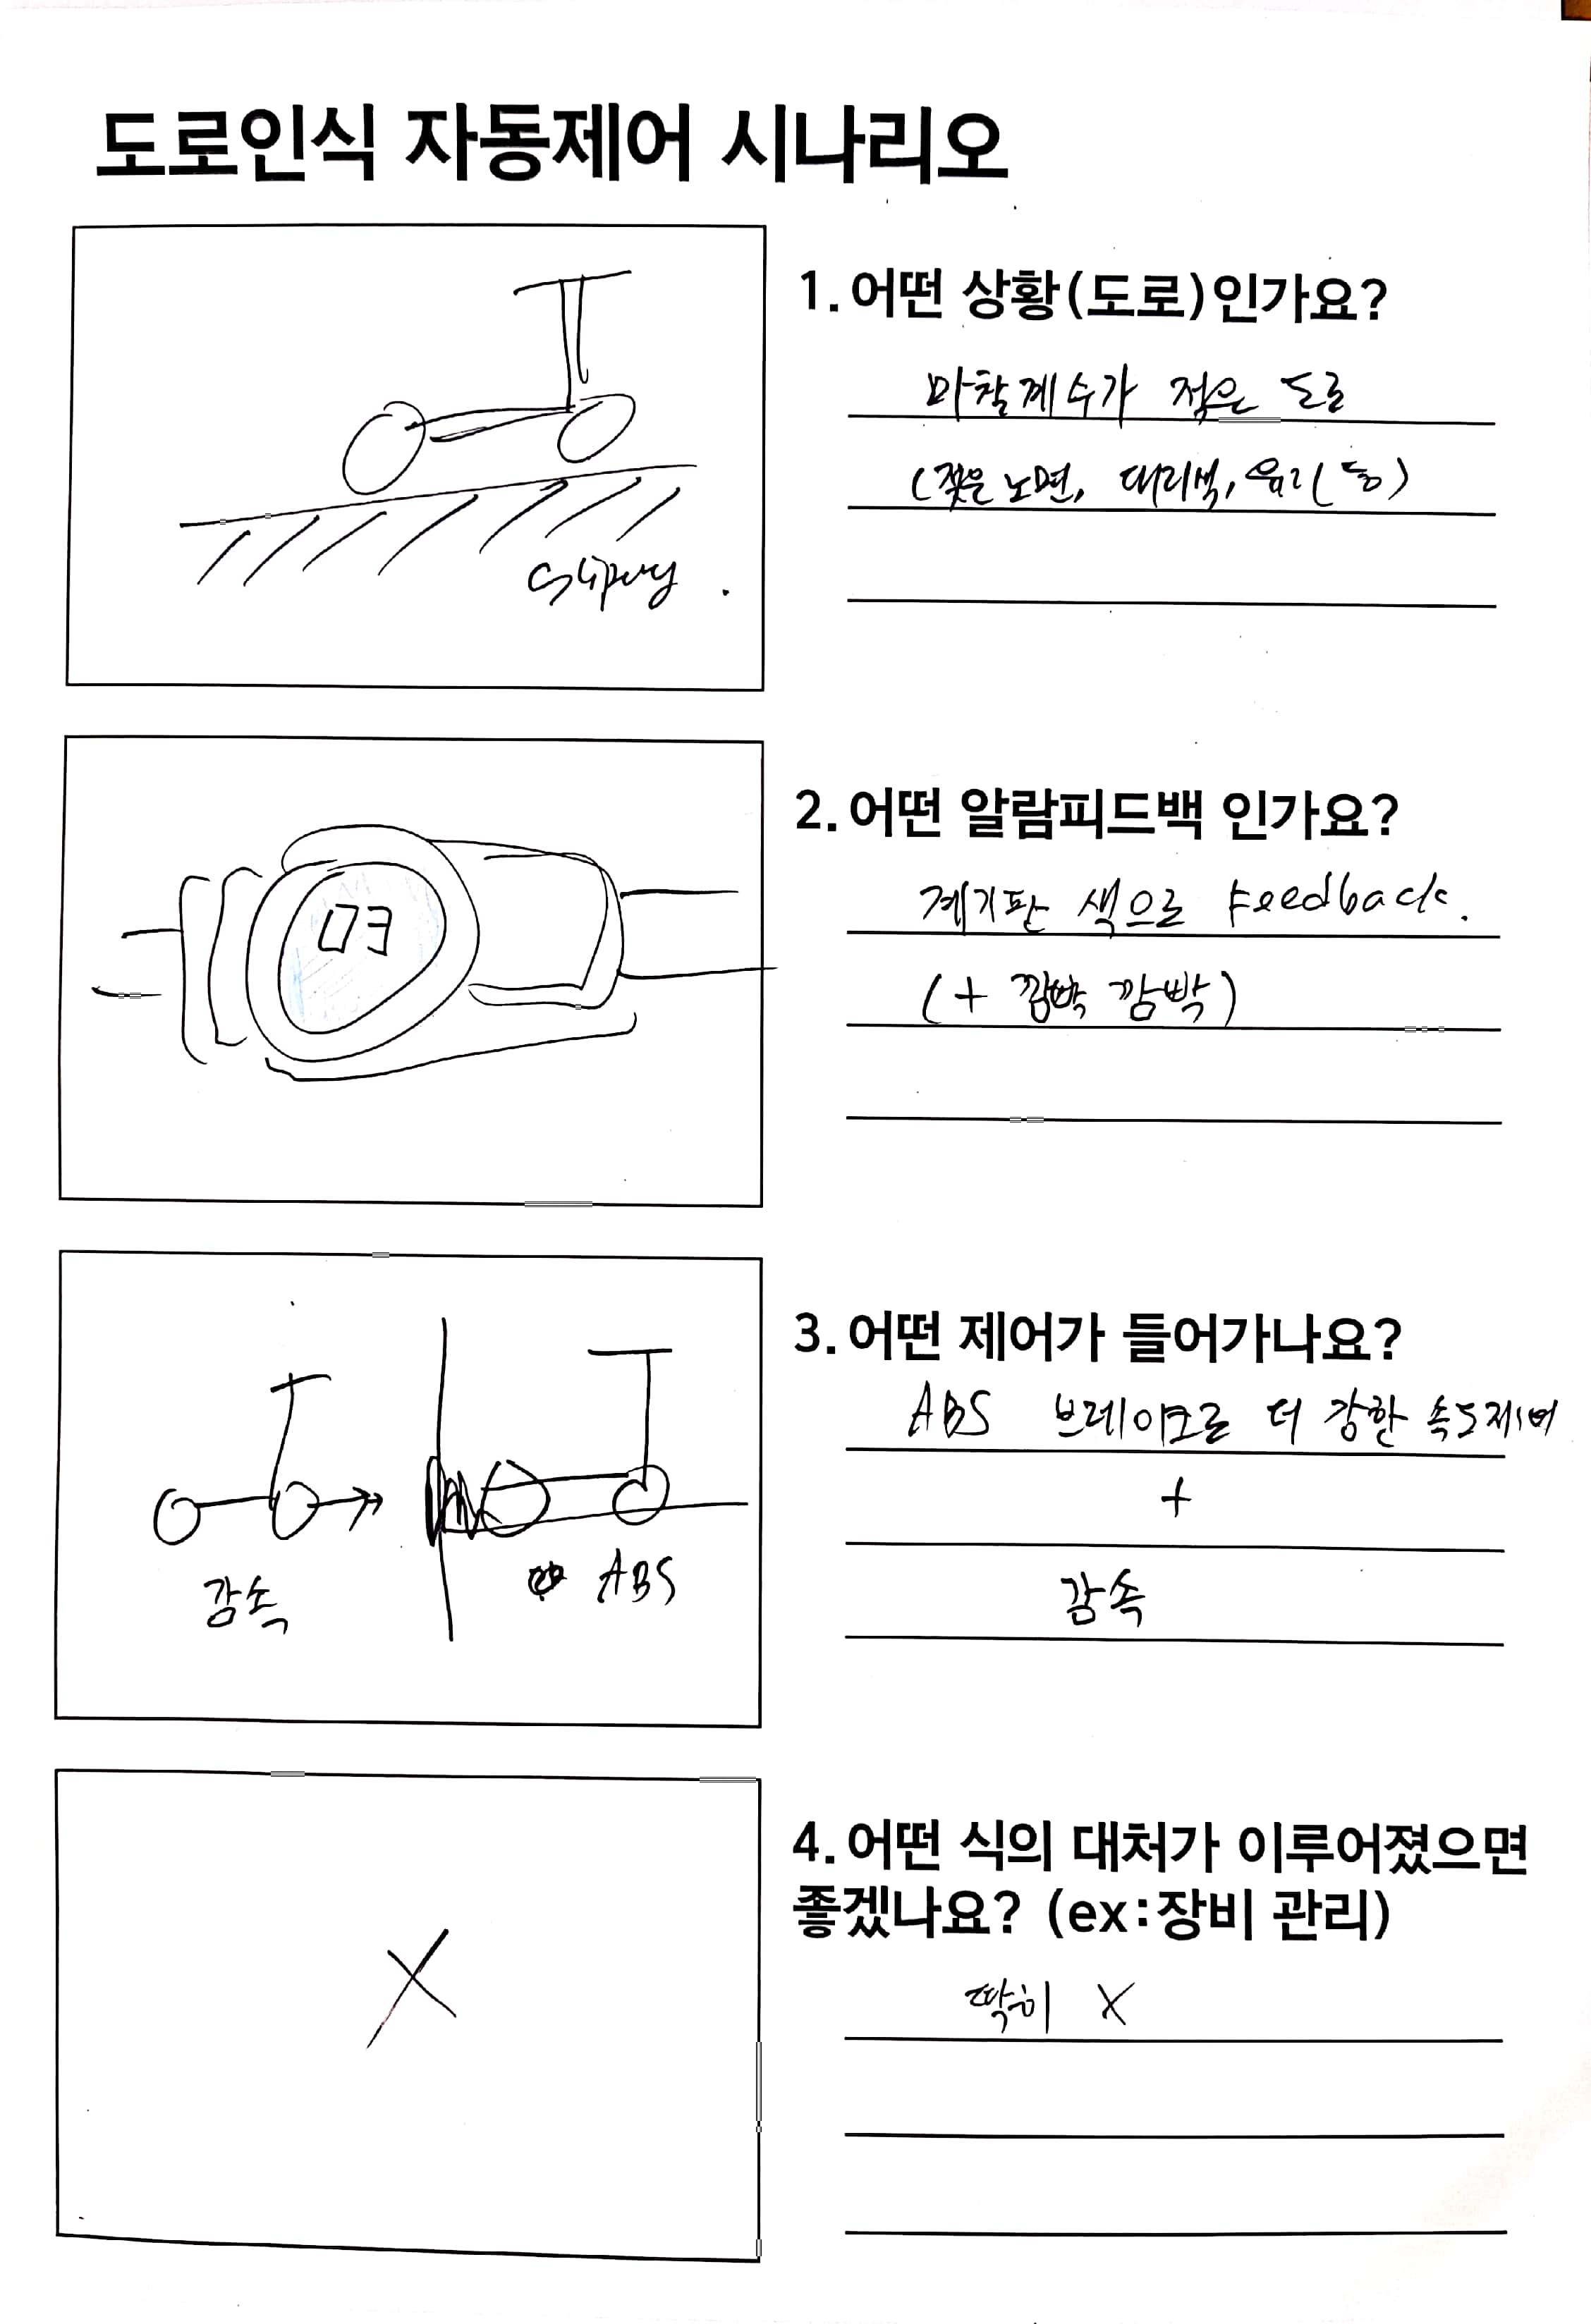 도로인식 자동제어 시나리오
1. 어떤 상황(도로)인가요?
마찰계수가 적은 도로
(젖은 노면, 대리석, 유리 등)
2. 어떤 알람피드백 인가요?
계기판 색으로 Feedback.
(+ 깜빡 깜빡)
3. 어떤 제어가 들어가나요?
ABS 브레이크로 더 강한 속도제어
+
감속
감속
ABS
4. 어떤 식의 대처가 이루어졌으면
좋겠나요? (ex:장비 관리)
딱히 X
X